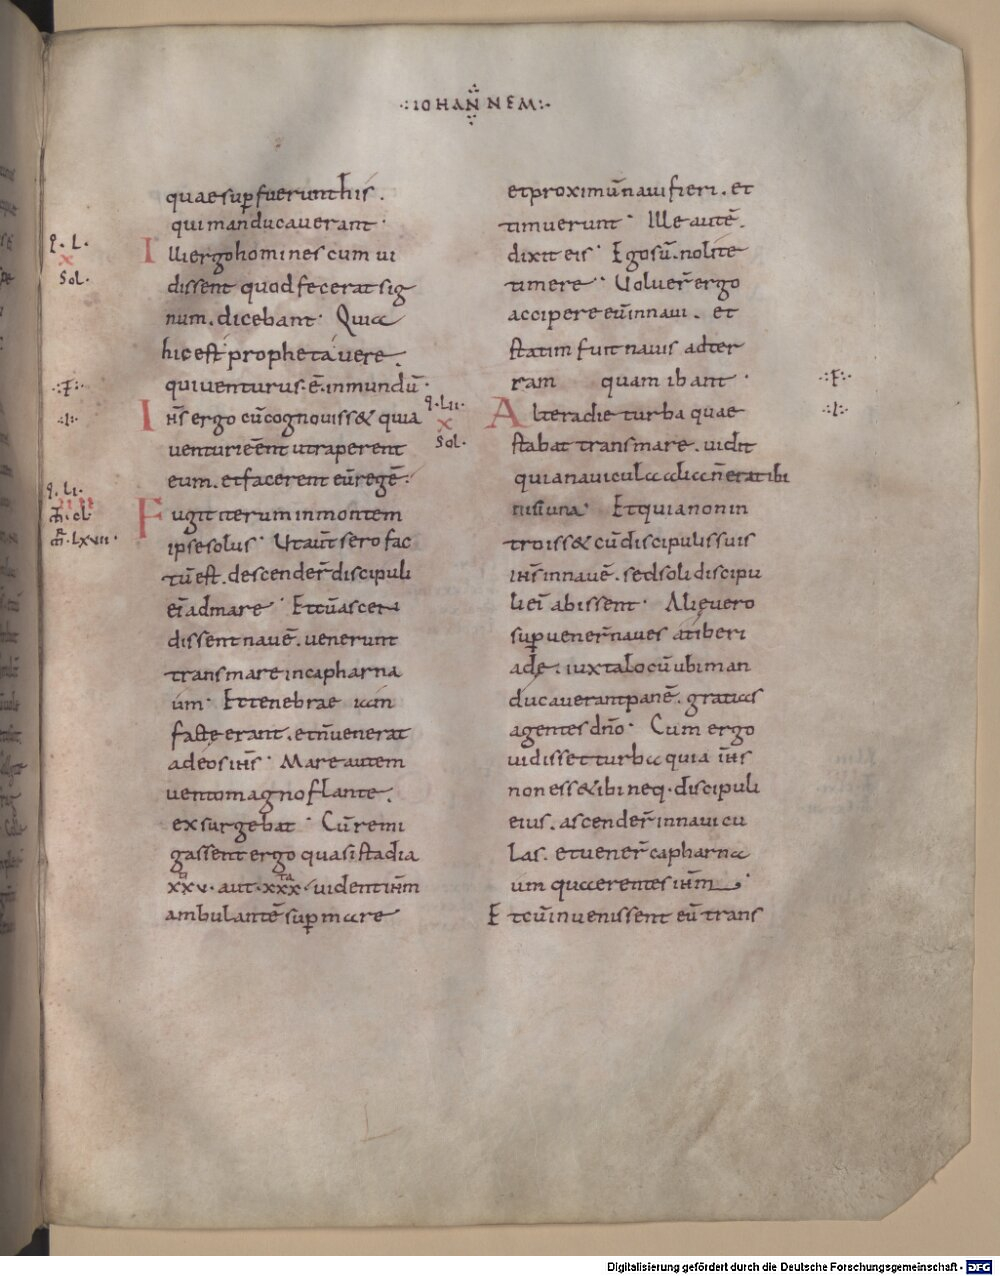 ·:IOHANNEM:·
quae sup̲ fuerunt his.
qui manducauerant·
Illi ergo homines cum ui
dissent quod fecerat sig
num. dicebant· Quia
hic est propheta uere.
qui uenturus. ē. in mundū·
Ih̄s ergo cū cognouiss& quia
uenturi eēnt ut raperent
eum. et facerent eū regē·
Fugit iterum in montem
ipse solus· Ut aūt sero fac
tū est. descender̄ discipuli
ei᷒ ad mare· Et cū ascen
dissent nauē. uenerunt
trans mare in capharna
úm· Et tenebrae iam
facte erant. et n̄ uenerat
ad eos ih̄s· Mare autem
uento magno flante.
exsurgebat· Cū remi
gassent ergo quasi stadia
xxv· aut·xxx· uident ih̄m
ambulantē sup̲ mare
et proximū naui fieri. et
timuerunt· Ille autē.
dixit eis· Ego sū. nolite
timere· Voluer̄ ergo
accipere eū in naui. et
statim fuit nauis ad ter
ram quam ibant·
Altera die turba quae
stabat trans mare. uidit
quia nauicula alia n̄ erat ibi
nisi una· Et quia non in
troiss& cū discipulis suis
ih̄s in nauē. sed soli discipu
li ei᷒ abissent· Alię uero
sup̲uener̄ naues a tiberi
ade· iuxta locū ubi man
ducauerant panē. gratias
agentes dn̄o· Cum ergo
uidisset turba quia ih̄s
non ess& ibi neq· discipuli
eius. ascender̄ in naui cu
las. et uener̄ capharna
um quaerentes ih̄m·
Et cū inuenissent eū trans
q· L·
x
Sol·
·:F:·
·:I:·
q· LI·
m̄· cl
m̄r· Lxvii·
q· Lii·
x
Sol·
·:F:·
·:I:·
Digitalisierung gefördert durch die Deutsche Forschungsgemeinschaft - DFG